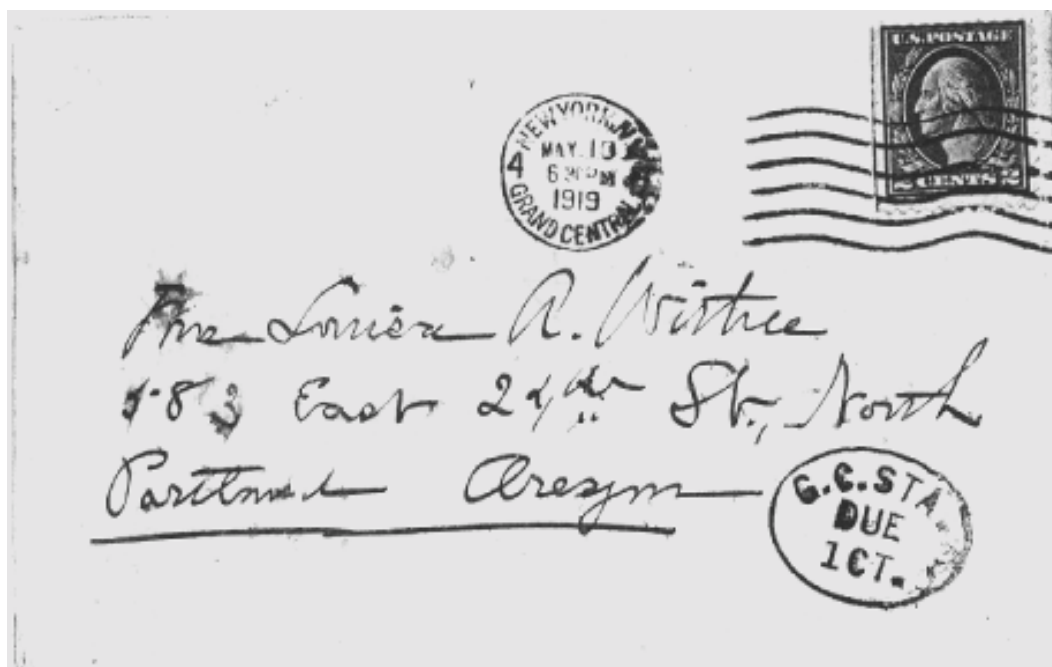 U.S. POSTAGE
2 CENTS 2
NEW YORK, N.Y.
MAY 10
6 30 PM
1919
4
GRAND CENTRAL
Louisa A.
583 East 24th St., North
Portland Oregon
G.C. STA.
DUE
1 CT.